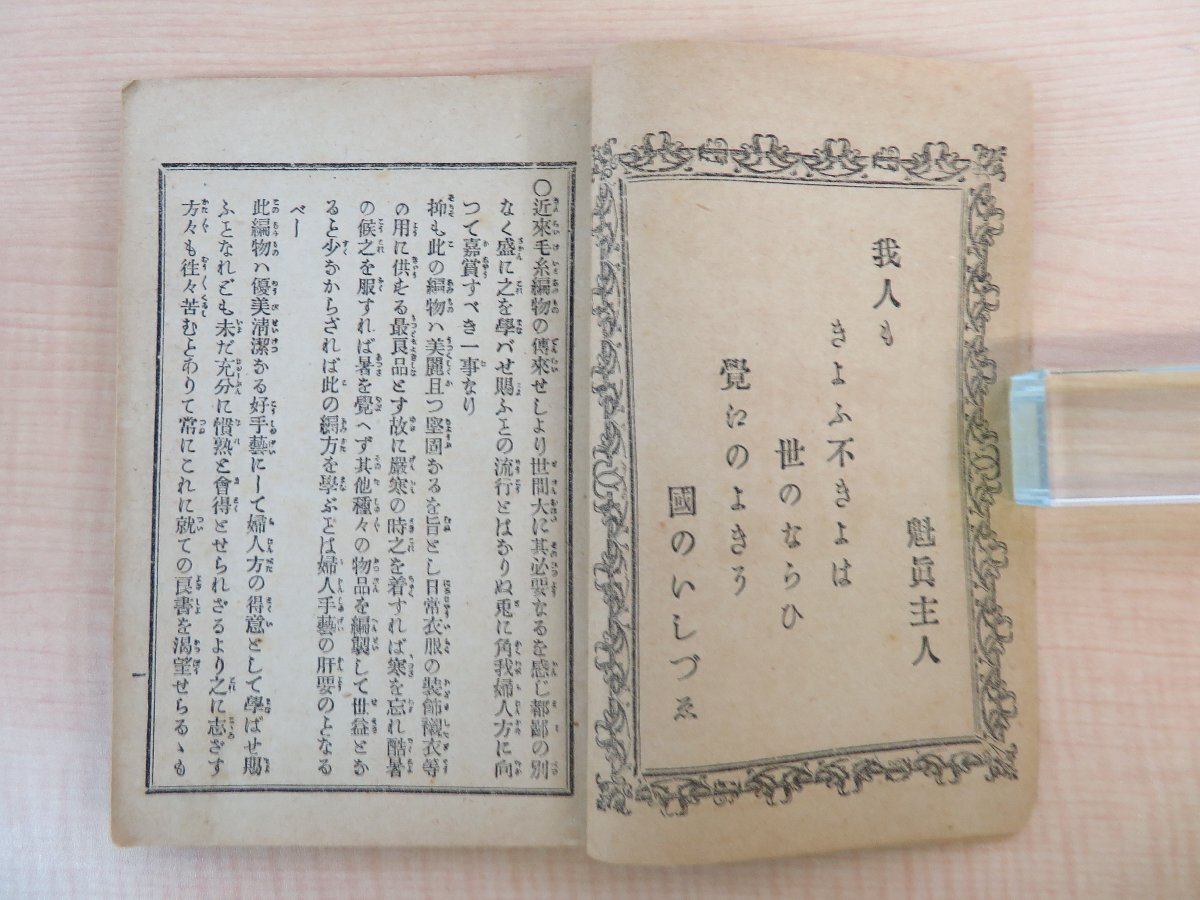 魁眞主人
我人も
きよふ不きよは
世のならひ
覺にのよきう
國のいしづゑ
○近來毛糸編物の傳來せしより世間大に其必要なるを感じ都鄙の別
なく盛に之を學バせ賜ふとの流行とはなりぬ兎に角我婦人方に向
つて嘉賞すべき一事なり
抑も此の編物ハ美麗且つ堅固なるを旨とし日常衣服の裝飾襯衣等
の用に供する最良品とす故に嚴寒の時之を着すれば寒を忘れ酷暑
の候之を服すれば暑を覺へず其他種々の物品を編製して世益とな
ると少なからざれば此の編方を學ぶとは婦人手藝の肝要のとなる
べし
此編物ハ優美淸潔なる好手藝にして婦人方の得意として學ばせ賜
ふとなれども未だ充分に慣熟と會得とせられざるより之に志ざす
方々も徃々苦むとありて常にこれに就ての良書を渴望せらるゝも
一